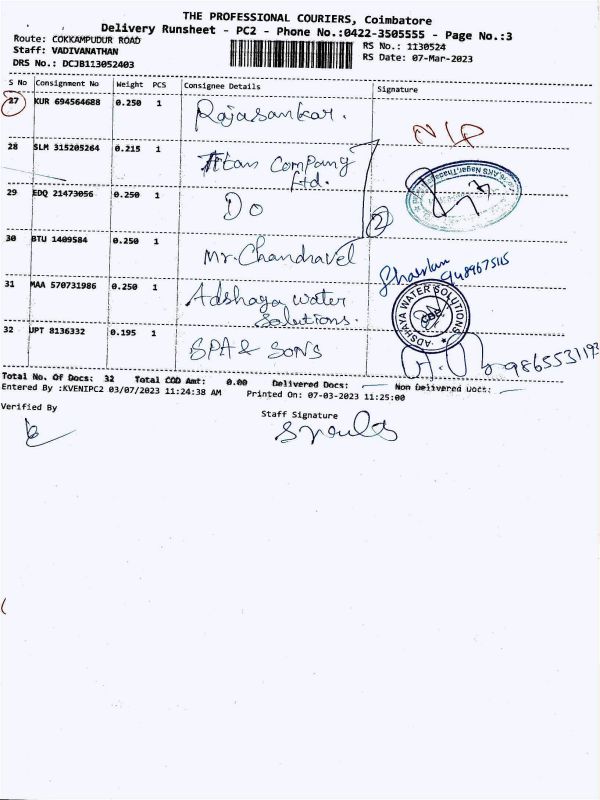 THE PROFESSIONAL COURIERS, Coimbatore
Delivery Runsheet - PC2 - Phone No.:0422-3505555 - Page No.:3
Route: COKKAMPUDUR ROAD
RS No.: 1130524
Staff: VADIVANATHAN
RS Date: 07-Mar-2023
DRS No.: DCJB113052403
S No Consignment No Weight PCS Consignee Details Signature
27 KUR 694564688 0.250 1 Rajasankar. NLP
28 SLM 315205264 0.215 1 Titan Company Ltd.
29 EDQ 21473056 0.250 1 Do
2
30 BTU 1409584 0.250 1 Mr. Chandravel
9489675115
31 MAA 570731986 0.250 1 Adshaya water Solutions.
ADSHAYA WATER SOLUTIONS
CBE
32 UPT 8136332 0.195 1 SPA & SONS
9865531193
Total No. Of Docs: 32 Total COD Amt: 0.00 Delivered Docs: Non Delivered Docs:
Entered By :KVENIPC2 03/07/2023 11:24:38 AM Printed On: 07-03-2023 11:25:00
Verified By
Staff Signature